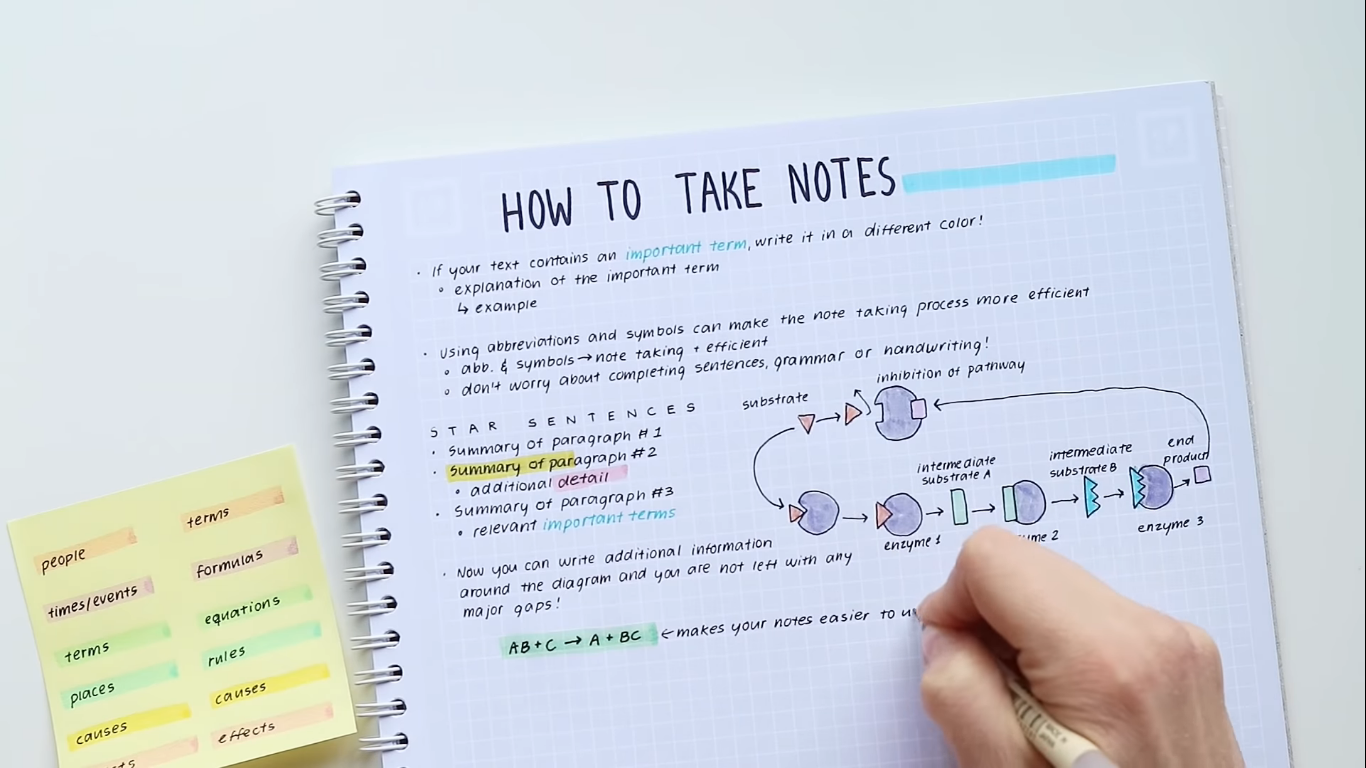 HOW TO TAKE NOTES
· If your text contains an important term, write it in a different color!
∘ explanation of the important term
↳ example
· Using abbreviations and symbols can make the note taking process more efficient
∘ abb. & symbols → note taking + efficient
∘ don't worry about completing sentences, grammar or handwriting!
STAR SENTENCES
· Summary of paragraph #1
· Summary of paragraph #2
∘ additional detail
· Summary of paragraph #3
∘ relevant important terms
substrate
inhibition of pathway
enzyme 1
intermediate
substrate A
intermediate
substrate B
end
product
enzyme 3
· Now you can write additional information
around the diagram and you are not left with any
major gaps!
AB + C → A + BC ← makes your notes easier to
people
times/events
terms
places
causes
terms
formulas
equations
rules
causes
effects